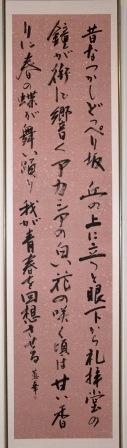 昔なつかしどっぺり坂 丘の上に立つと眼下から礼拝堂の
鐘が街に響く アカシアの白い花の咲く頃は甘い香
りに春の蝶が舞い踊り 我が青春を回想させる